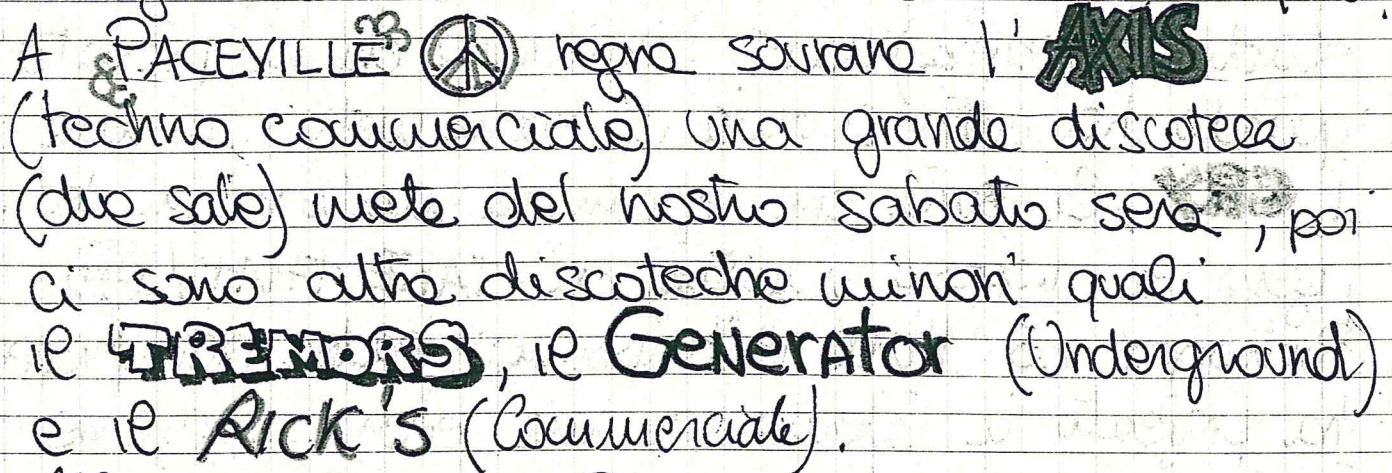 A PACEVILLE regna sovrana l'AXIS
(techno commerciale) una grande discoteca
(due sale) meta del nostro sabato sera, poi
ci sono altre discoteche minori quali
il TREMORS, il GENERATOR (Underground)
e il RICK'S (Commerciale).